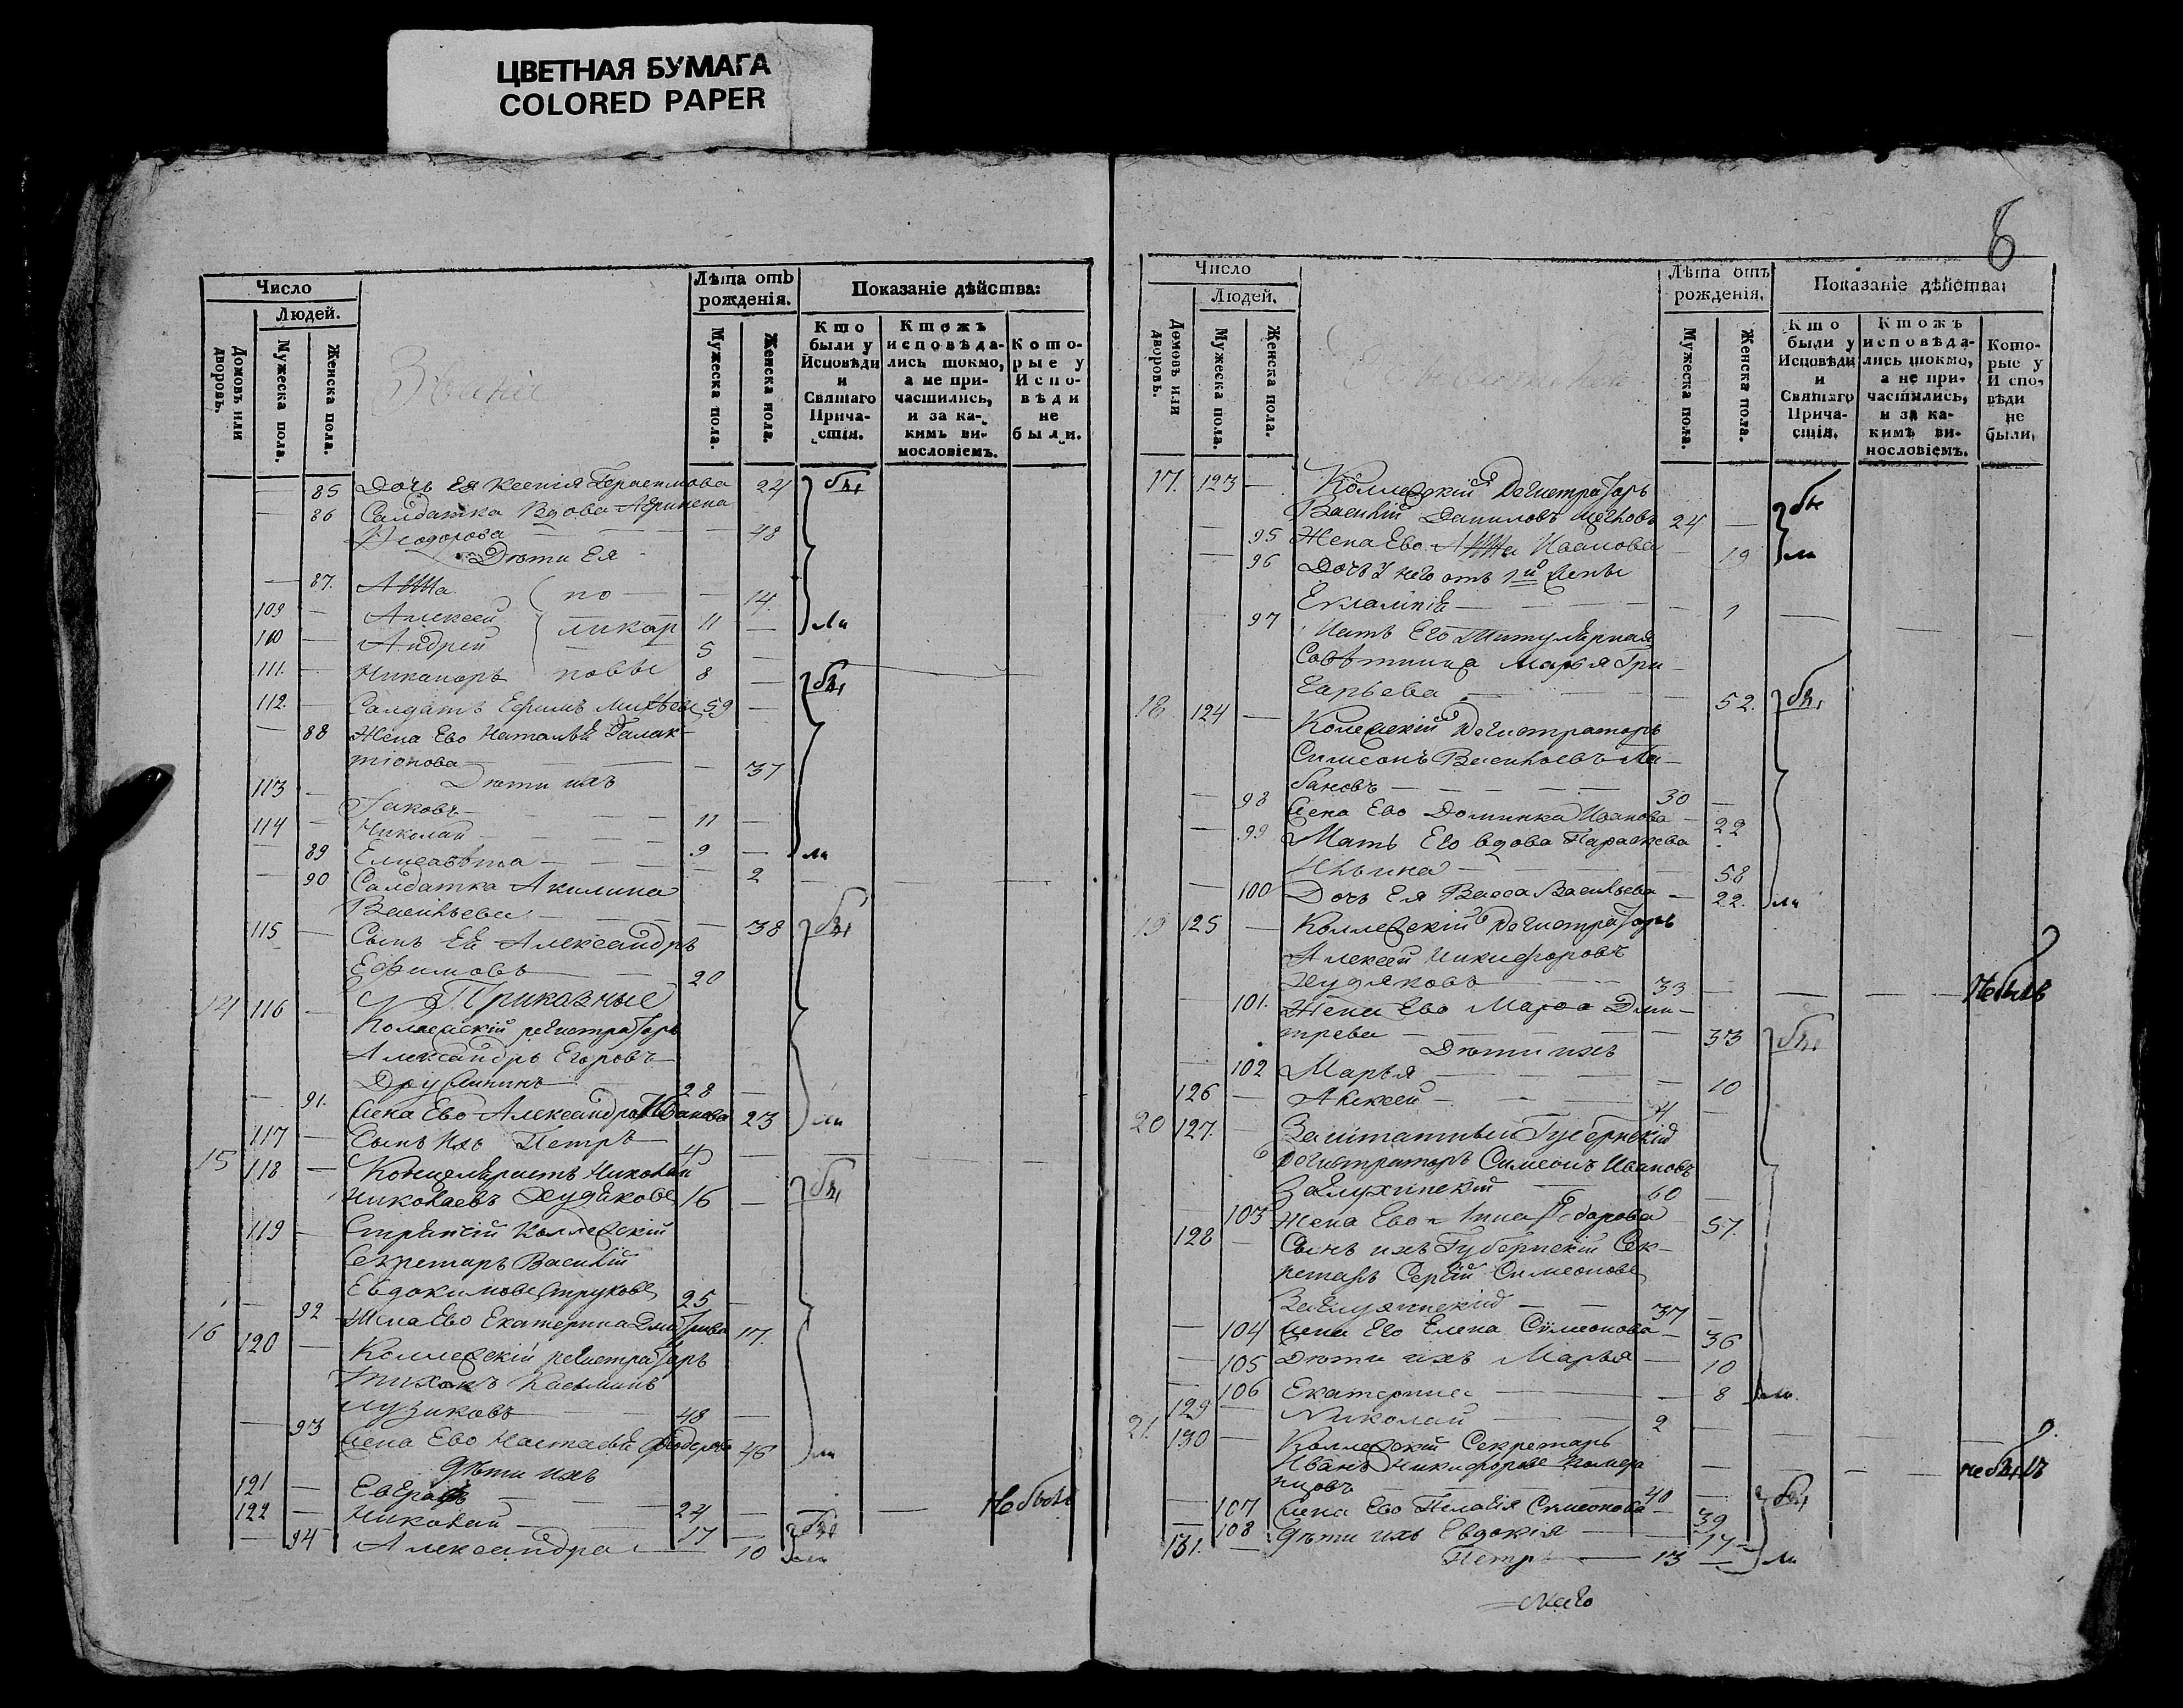 ЦВЕТНАЯ БУМАГА
COLORED PAPER
Число
Людей.
Домовъ или дворовъ.
Мужеска пола.
Женска пола.
Званіе
Лѣта отъ рожденія.
Мужеска пола.
Женска пола.
Показаніе дѣйства:
Кто были у Исповѣди и Святаго Причастія.
Ктожъ исповѣдались токмо, а не причастились, и за какимъ винословіемъ.
Которые у Исповѣди не были.
85 Дочь ея Ксенія 24 бы
86 Салдатка Вдова
Ѳеодорова 48
Дѣти Ея
87. Анна по 14.
109 Алексей ликар 11 ли
110 Андрей 5
111. Никаноръ повы 8 бы
112 Салдатъ Ефимъ 59
88 Жена Ево Наталья Галак-
тіонова 37
Дѣти ихъ
113 Іаковъ 11
114 Николай 9 ли
89 Елисавѣта 2
90 Салдатка Акилина
Васильева 38 бы
115 Сынъ Ея Александръ
Ефимовъ 20
Приказные
14 116 Коллежскій регистраторъ
Александръ Егоровъ
28
91. Жена Ево Александра Иванова 23 ли
117 Сынъ Ихъ Петръ 4
15 118 Канцеляристъ Николай
Николаевъ Худяковъ 16 бы
119 Стряпчій Коллежскій
Секретарь Василій
Евдокимовъ Струковъ 25
92 Жена Ево Екатерина 17.
16 120 Коллежскій регистраторъ
Тихонъ
48
93 Жена Ево Настасья Ѳеодорова 46 ли
Дѣти ихъ
121 Евграфъ 24 Не былъ
122 Николай 17 бы
94 Александра 10 ли
6
Число
Людей.
Домовъ или дворовъ.
Мужеска пола.
Женска пола.
Лѣта отъ рожденія.
Мужеска пола.
Женска пола.
Показаніе дѣйства:
Кто были у Исповѣди и Святаго Причастія.
Ктожъ исповѣдались токмо, а не причастились, и за какимъ винословіемъ.
Которые у Исповѣди не были.
17. 123 Коллежскій Регистраторъ
Василій Даниловъ 24 бы
95 Жена Ево Анна Иванова 19 ли
96 Дочь У него отъ 1й Жены
1
97 Мать Его Титулярная
Совѣтница Марья Гри-
горьева 52. бы
18 124 Колежскій Регистраторъ
Симеонъ Васильевъ Ла-
бановъ 30
98 Жена Ево Домника Иванова 22
99 Мать Его вдова Параскева
Ильина 58
100 Дочь Ея Васса Васильева 22. ли
19 125 Коллежскій Регистраторъ
Алексей Никифоровъ
Худяковъ 33 Не былъ
101. Жена Ево Марѳа Дми-
трева 33 бы
Дѣти ихъ
102 Марья 10
126 Алексей 4
20 127. Заштатный Губернскій
Регистраторъ Симеонъ Ивановъ
60
103 Жена Ево Анна Ѳедорова 57.
128 Сынъ ихъ Губернскій Сек-
ретарь Сергій Симеоновъ
37
104 Жена Ево Елена Симеонова 36
105 Дѣти ихъ Марья 10
106 Екатерина 8 ли
129 Николай 2
21. 130 Коллежскій Секретарь
Иванъ Никифоровъ
40 не былъ
107 Жена Ево Пелагія Симеонова 39 бы
108 Дѣти ихъ Евдокія 17
131. Петръ 13 ли